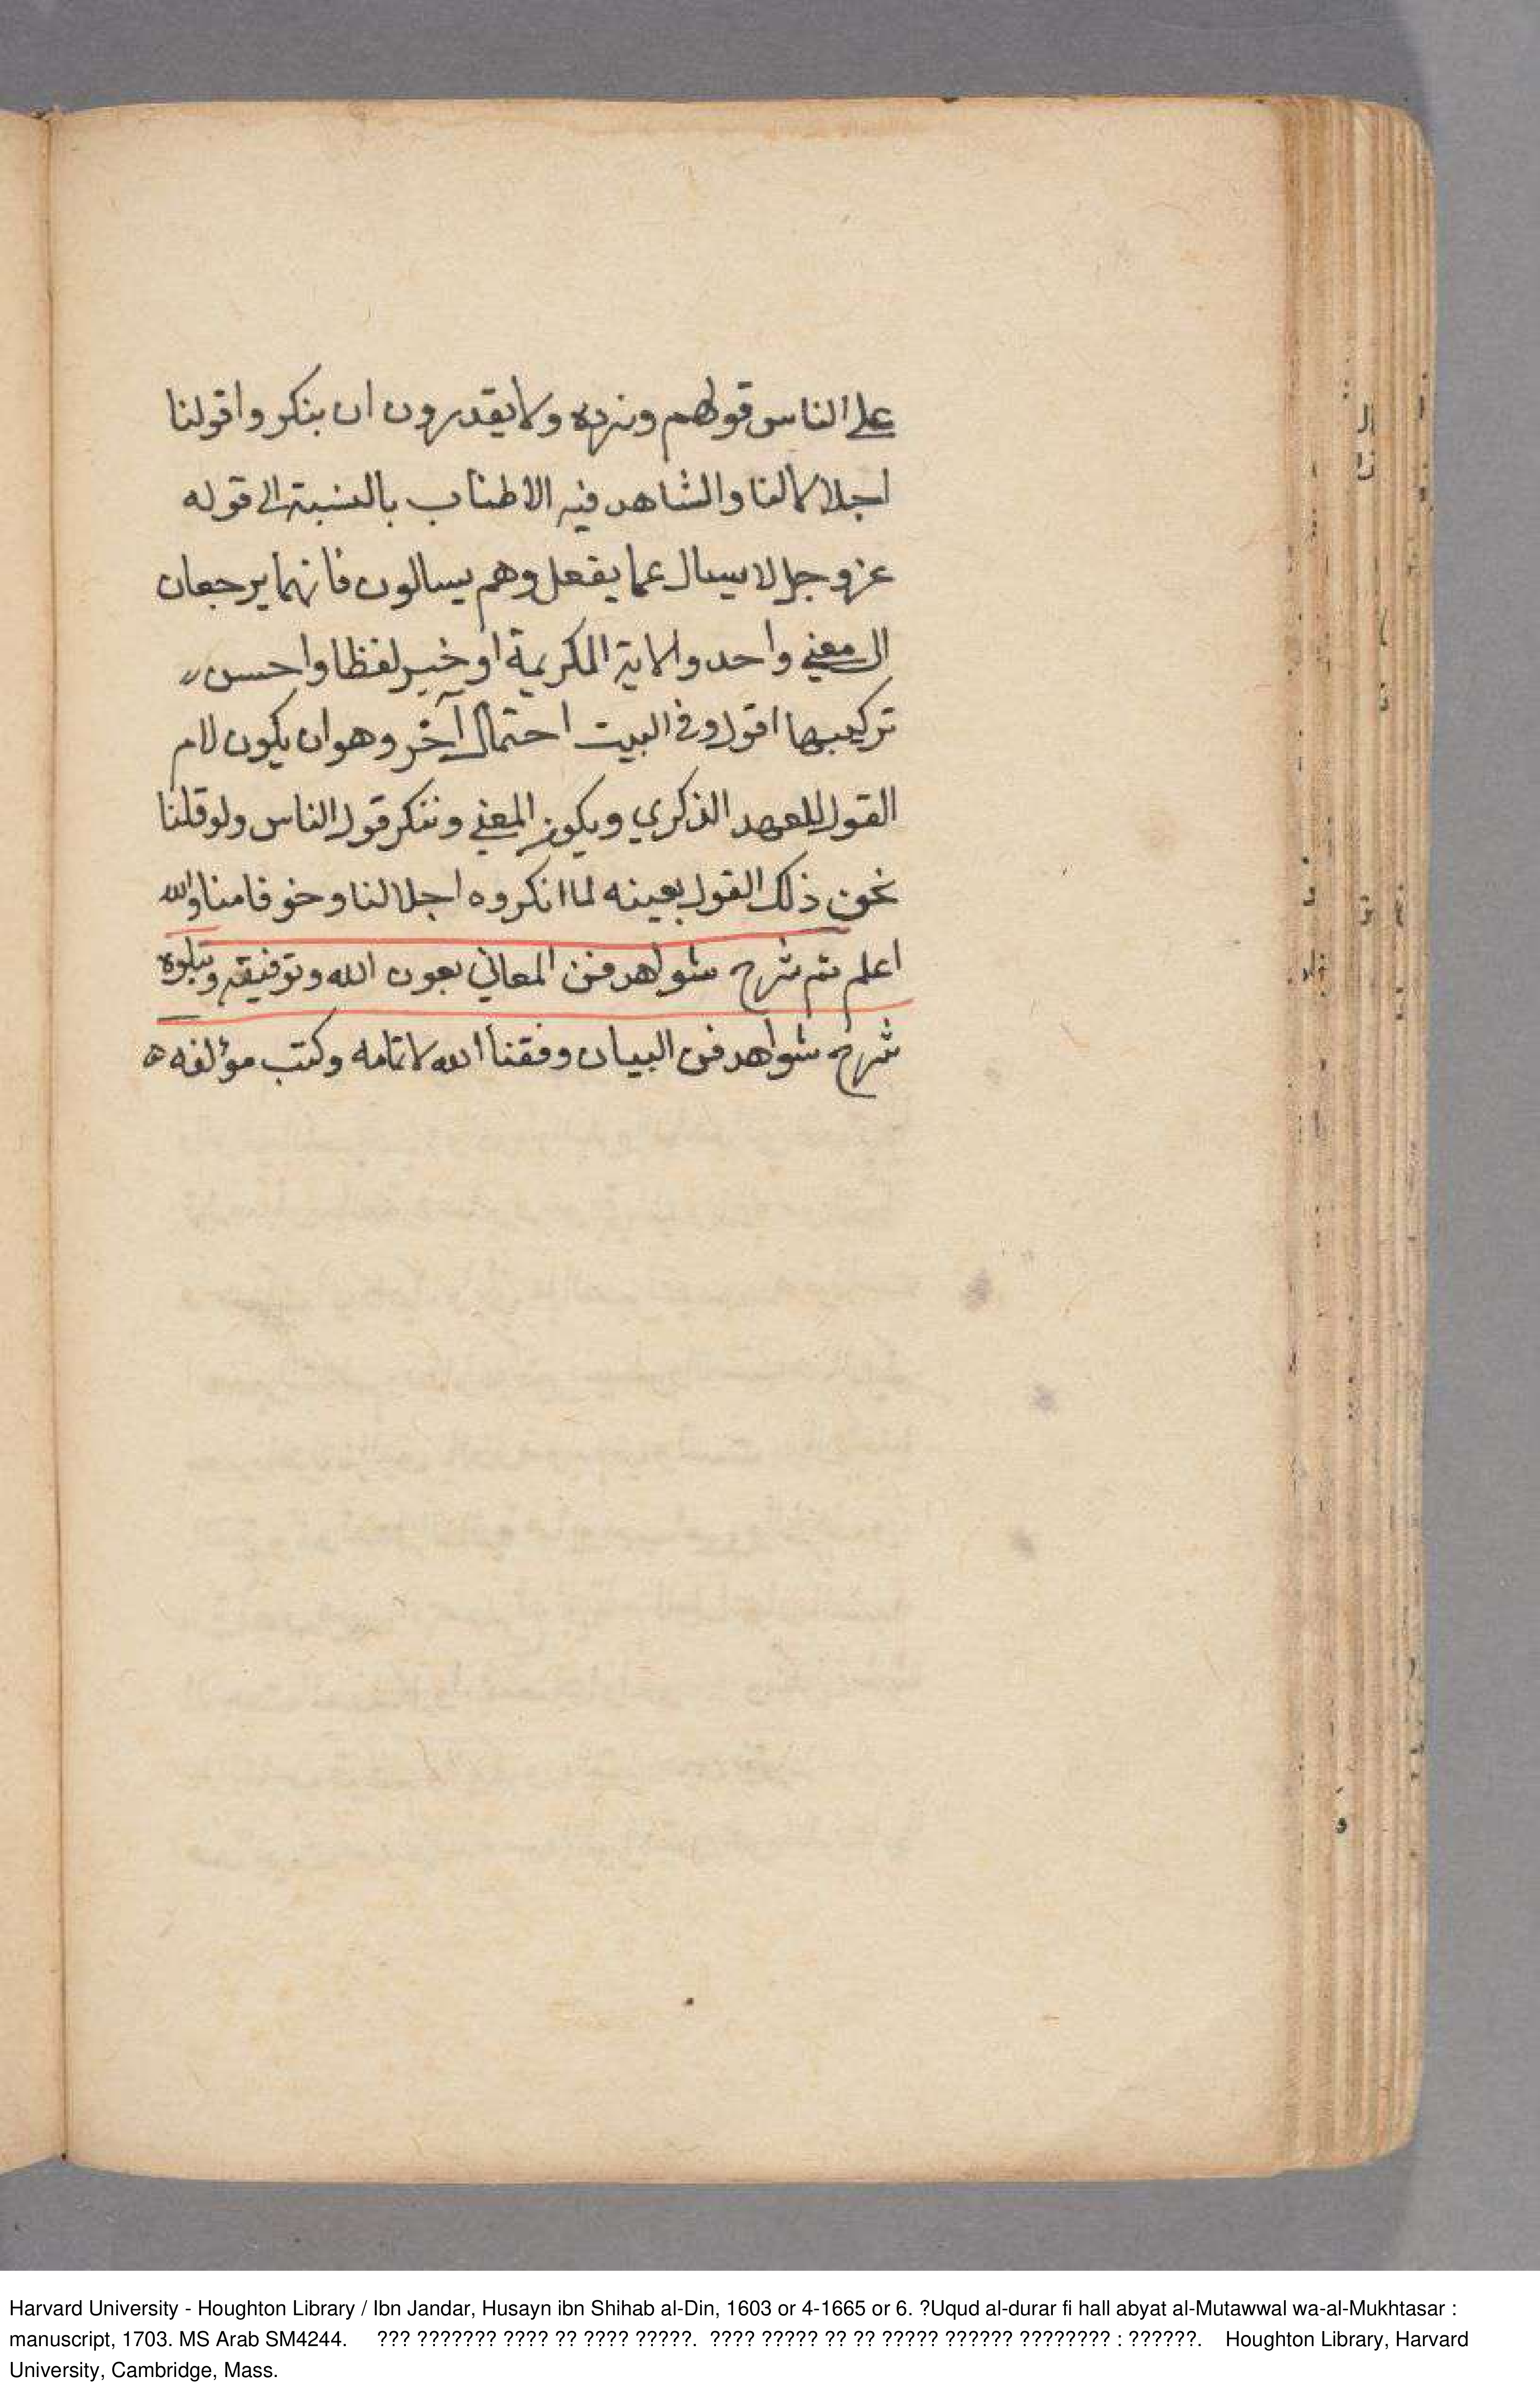 على الناس قولهم ونرده ولا يقدرون ان ينكروا قولنا
اجلالا لنا والشاهد فيه الاطناب بالنسبة الى قوله
عز وجل لا يسال عما يفعل وهم يسالون فانهما يرجعان
الى معنى واحد والاية الكريمة اوخير لفظا واحسن
تركيبها اقول وفي البيت احتمال آخر وهو ان يكون لام
القول للعهد الذكري ويكون المعنى وننكر قول الناس ولو قلنا
نحن ذلك القول بعينه لما انكروه اجلالا لنا وخوفا منا والله
اعلم تم شرح شواهد فن المعاني بعون الله وتوفيقه ويتلوه
شرح شواهد فن البيان وفقنا الله لاتمامه وكتب مؤلفه
Harvard University - Houghton Library / Ibn Jandar, Husayn ibn Shihab al-Din, 1603 or 4-1665 or 6. ?Uqud al-durar fi hall abyat al-Mutawwal wa-al-Mukhtasar :
manuscript, 1703. MS Arab SM4244. ??? ??????? ???? ?? ???? ?????. ???? ????? ?? ?? ????? ?????? ???????? : ??????. Houghton Library, Harvard
University, Cambridge, Mass.